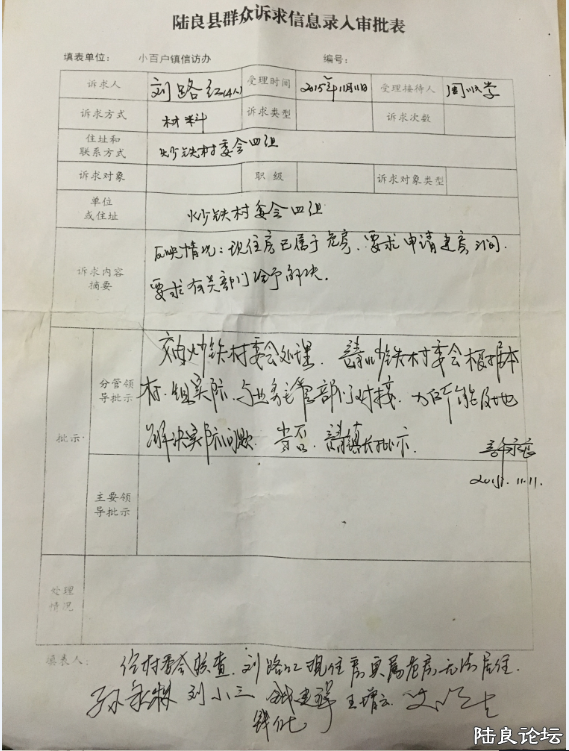 陆良县群众诉求信息录入审批表
填表单位： 小百户镇信访办 编号：
诉求人 刘路红(4人) 受理时间 2015年11月11日 受理接待人
诉求方式 材料 诉求类型 诉求次数
住址和
联系方式 炒铁村委会四组
诉求对象 职级 诉求对象类型
单位
或住址 炒铁村委会四组
诉求内容
摘要
反映情况：现住房已属于危房，要求申请建房
要求有关部门给予解决。
批示
分管领
导批示
交由炒铁村委会处理。请炒铁村委会根据本
村、组实际，与业务主管部门对接，
解决实际问题。当否，请镇长批示。
2015.11.11.
主要领
导批示
处理
情况
填表人：
经村委会联查，刘路红现住房实属危房无法居住。
刘小三
陆良论坛